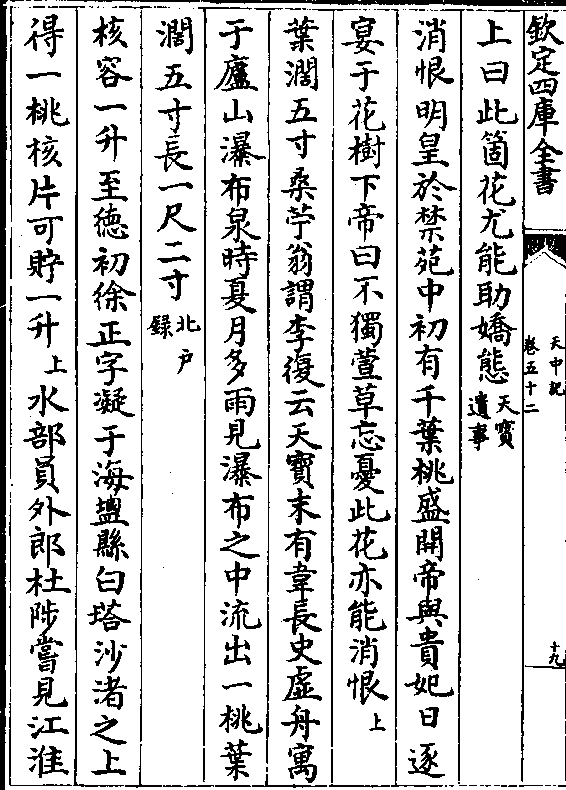 欽定四庫全書
天中記
卷五十二
十九
上曰此箇花尤能助嬌態天寳遺事
消恨明皇於禁苑中初有千葉桃盛開帝與貴妃日逐
宴于花樹下帝曰不獨萱草忘憂此花亦能消恨上
葉濶五寸桑苧翁謂李復云天寳末有韋長史虛舟寓
于廬山瀑布泉時夏月多雨見瀑布之中流出一桃葉
濶五寸長一尺二寸北户録
核容一升至德初徐正字凝于海塩縣白塔沙渚之上
得一桃核片可貯一升上水部員外郎杜陟嘗見江淮